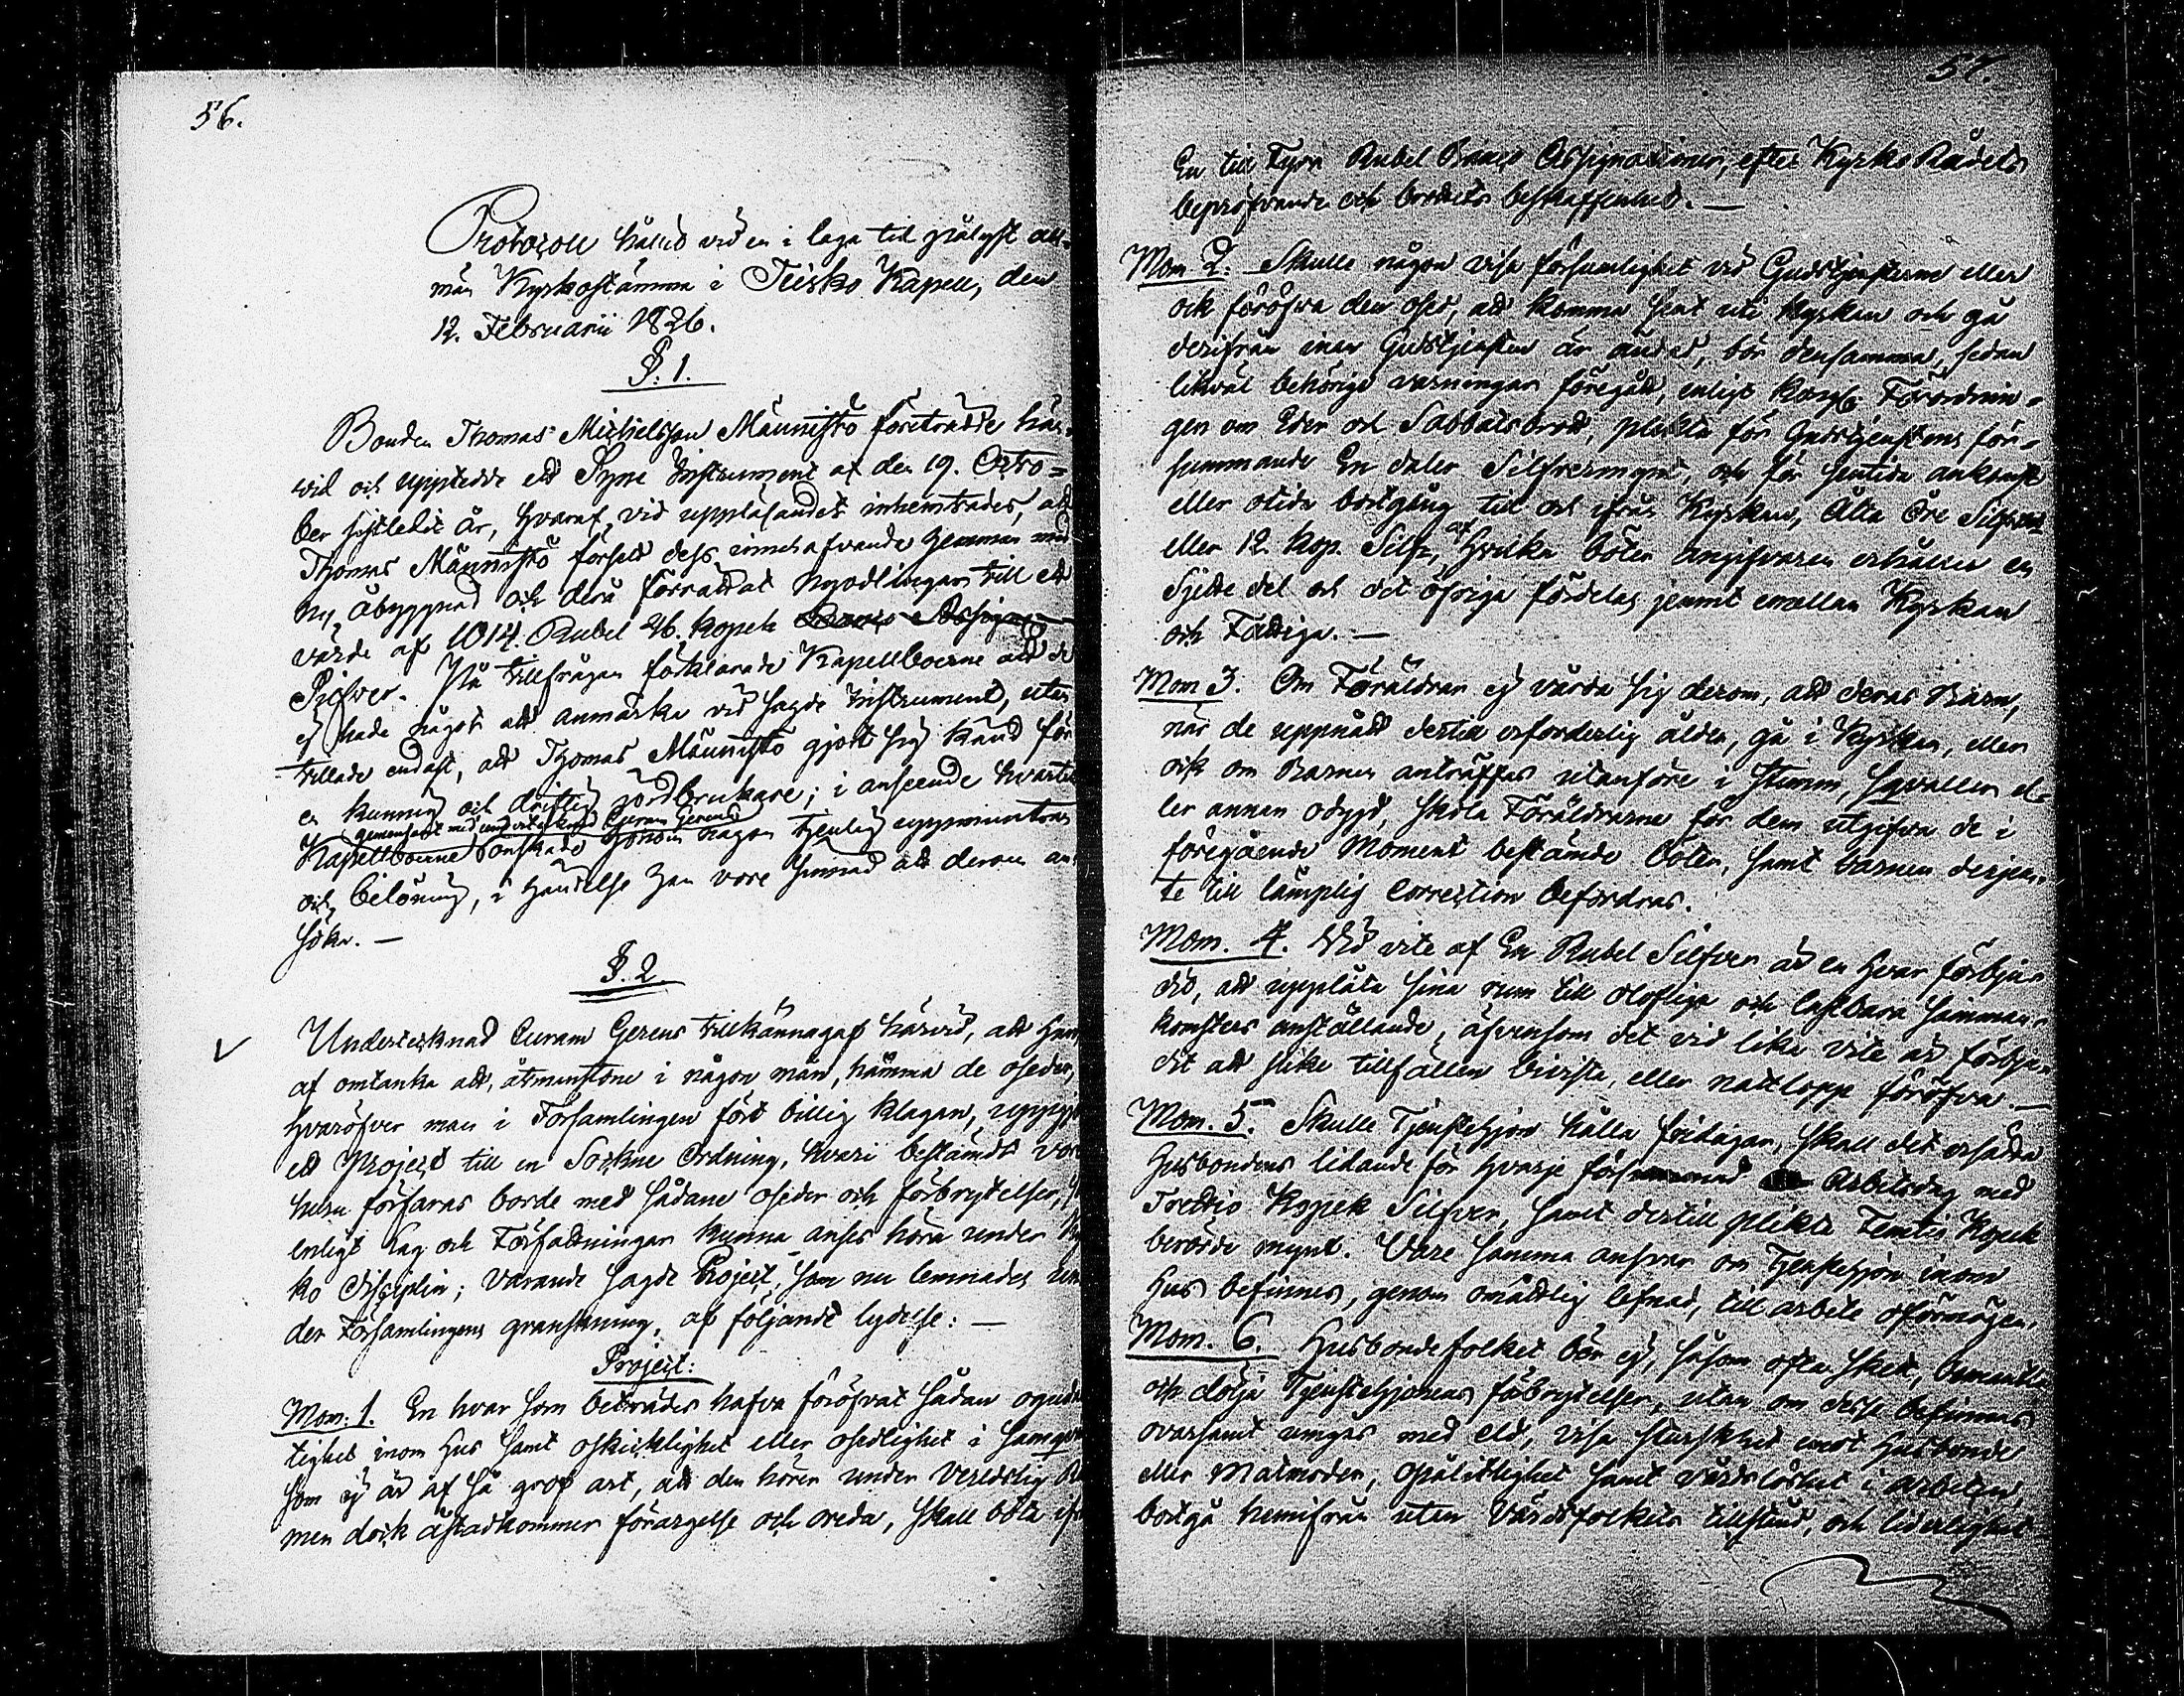 56.
Protocoll hållit vid en i laga tid pålyst all-
män Kyrkostämma i Teisko Kapell, den
12. Februarii 1826.
§. 1.
Bonden Thomas Michelsson Männistö företrädde här-
vid och uppтedde ett Syne Instrument af den 19. Octo=
ber sistledit år, hvaraf, vid uppläsandet inhemtades, att
Thomas Männistö försett dess innehafvande hemman med
ny åbyggnad och derå förrättat nyodlingar till ett
värde af 1014. Rubel 46. kopek Banco Assign
Silfver. På tillfrågan förklarade Kapellboerne att de
ej hade något att anmärka vid sagde Instrument, utan
tillade endast, att Thomas Männistö gjort sig känd för
en kunnig och driftig jordbrukare; i anseende hvartill
gemensamt med undertecknad Curam Gerens
Kapellboerne önskade honom någon tjenlig uppmuntran
och belöning, i händelse han vore sinnad att derom an-
söka. —
§. 2
Undertecknad Curam Gerens tillkännagaf härvid, att han
af omtanka att, åtminstone i någon mån, hämma de oseder,
hvaröfver man i Församlingen fört billig klagan, uppgjort
ett Project till en Sockne Ordning, hvari bestämdt vore
huru förfaras borde med sådane oseder och förbrytelser,
enligt Lag och Författningar kunna anses höra under Kyr
ko disciplin; varande sagde Project, som nu lemnades un
der Församlingens granskning, af följande lydelse: —
Project:
Mom: 1. En hvar som beträdes hafva föröfvat sådan ogud
tighet inom hus samt oskicklighet eller osedlighet i
som ej är af så grof art, att den hörer under Verldslig
men dock åstadkommer förargelse och oreda, skall böta ifrån
57.
En till Fyra Rubel Banco Assignationer, efter Kyrko Rådets
bepröfvande och brottets beskaffenhet. —
Mom. 2. Skulle någon visa försumlighet vid Gudstjensterne eller
ock föröfva den osed, att komma sent uti Kyrkan och gå
derifrån innan Gudstjensten är ändad, bör densamma, sedan
likväl behöriga varningar föregått, enligt Kongl. Förordnin=
gen om Eder och Sabbatsbrott, plikta för Gudstjenstens för=
summande En daler Silfvermynt, och för sentida ankomst
eller otida bortgång till och ifrån Kyrkan, Åtta öre Silfvermt
eller 12. kop. Silfr, af hvilka böter angifvaren erhåller en
Sjette del och det öfriga fördelas jemnt emellan Kyrkan
och Fattiga. —
Mom 3. Om Föräldrar ej vårda sig derom, att deras Barn,
när de uppnått dertill erforderlig ålder, gå i Kyrkan, eller
ock om Barnen anträffas utanföre i stimm, sqvaller el=
ler annan odygd, skola Föräldrarne för dem utgifva de i
föregående Moment bestämde böter, samt barnen derjem-
te till lämplig Correction befordras.
Mom. 4. Vid vite af En Rubel Silfver är en hvar förbju=
dit, att upplåta sina rum till olofliga och lastbara samman=
komsters anställande; äfvensom det vid lika vite är förbju=
dit att slike tillfällen bivista, eller nattlopp föröfva. —
Mom. 5. Skulle Tjenstehjon hålla fridagar, skall det ersätta
Husbondens lidande för hvarje försummad Arbetsdag med
Trettio Kopek Silfver, samt dertill plikta Femtio Kopek
berörde mynt. Vare samma ansvar om Tjenstehjon inom
hus befinnes, genom omåttlig lefnad, till arbete oförmögen.
Mom. 6. Husbondefolket bör ej, såsom ofta skett, bemantla
och dölja Tjenstehjonens förbrytelser, utan om desse befinnas
ovarsamt umgås med eld, visa sturskhet emot Husbonde
eller Matmoder, opålitlighet samt vårdslöshet i arbeten,
bortgå hemifrån utan Värdsfolkets tillstånd, och liderlighet